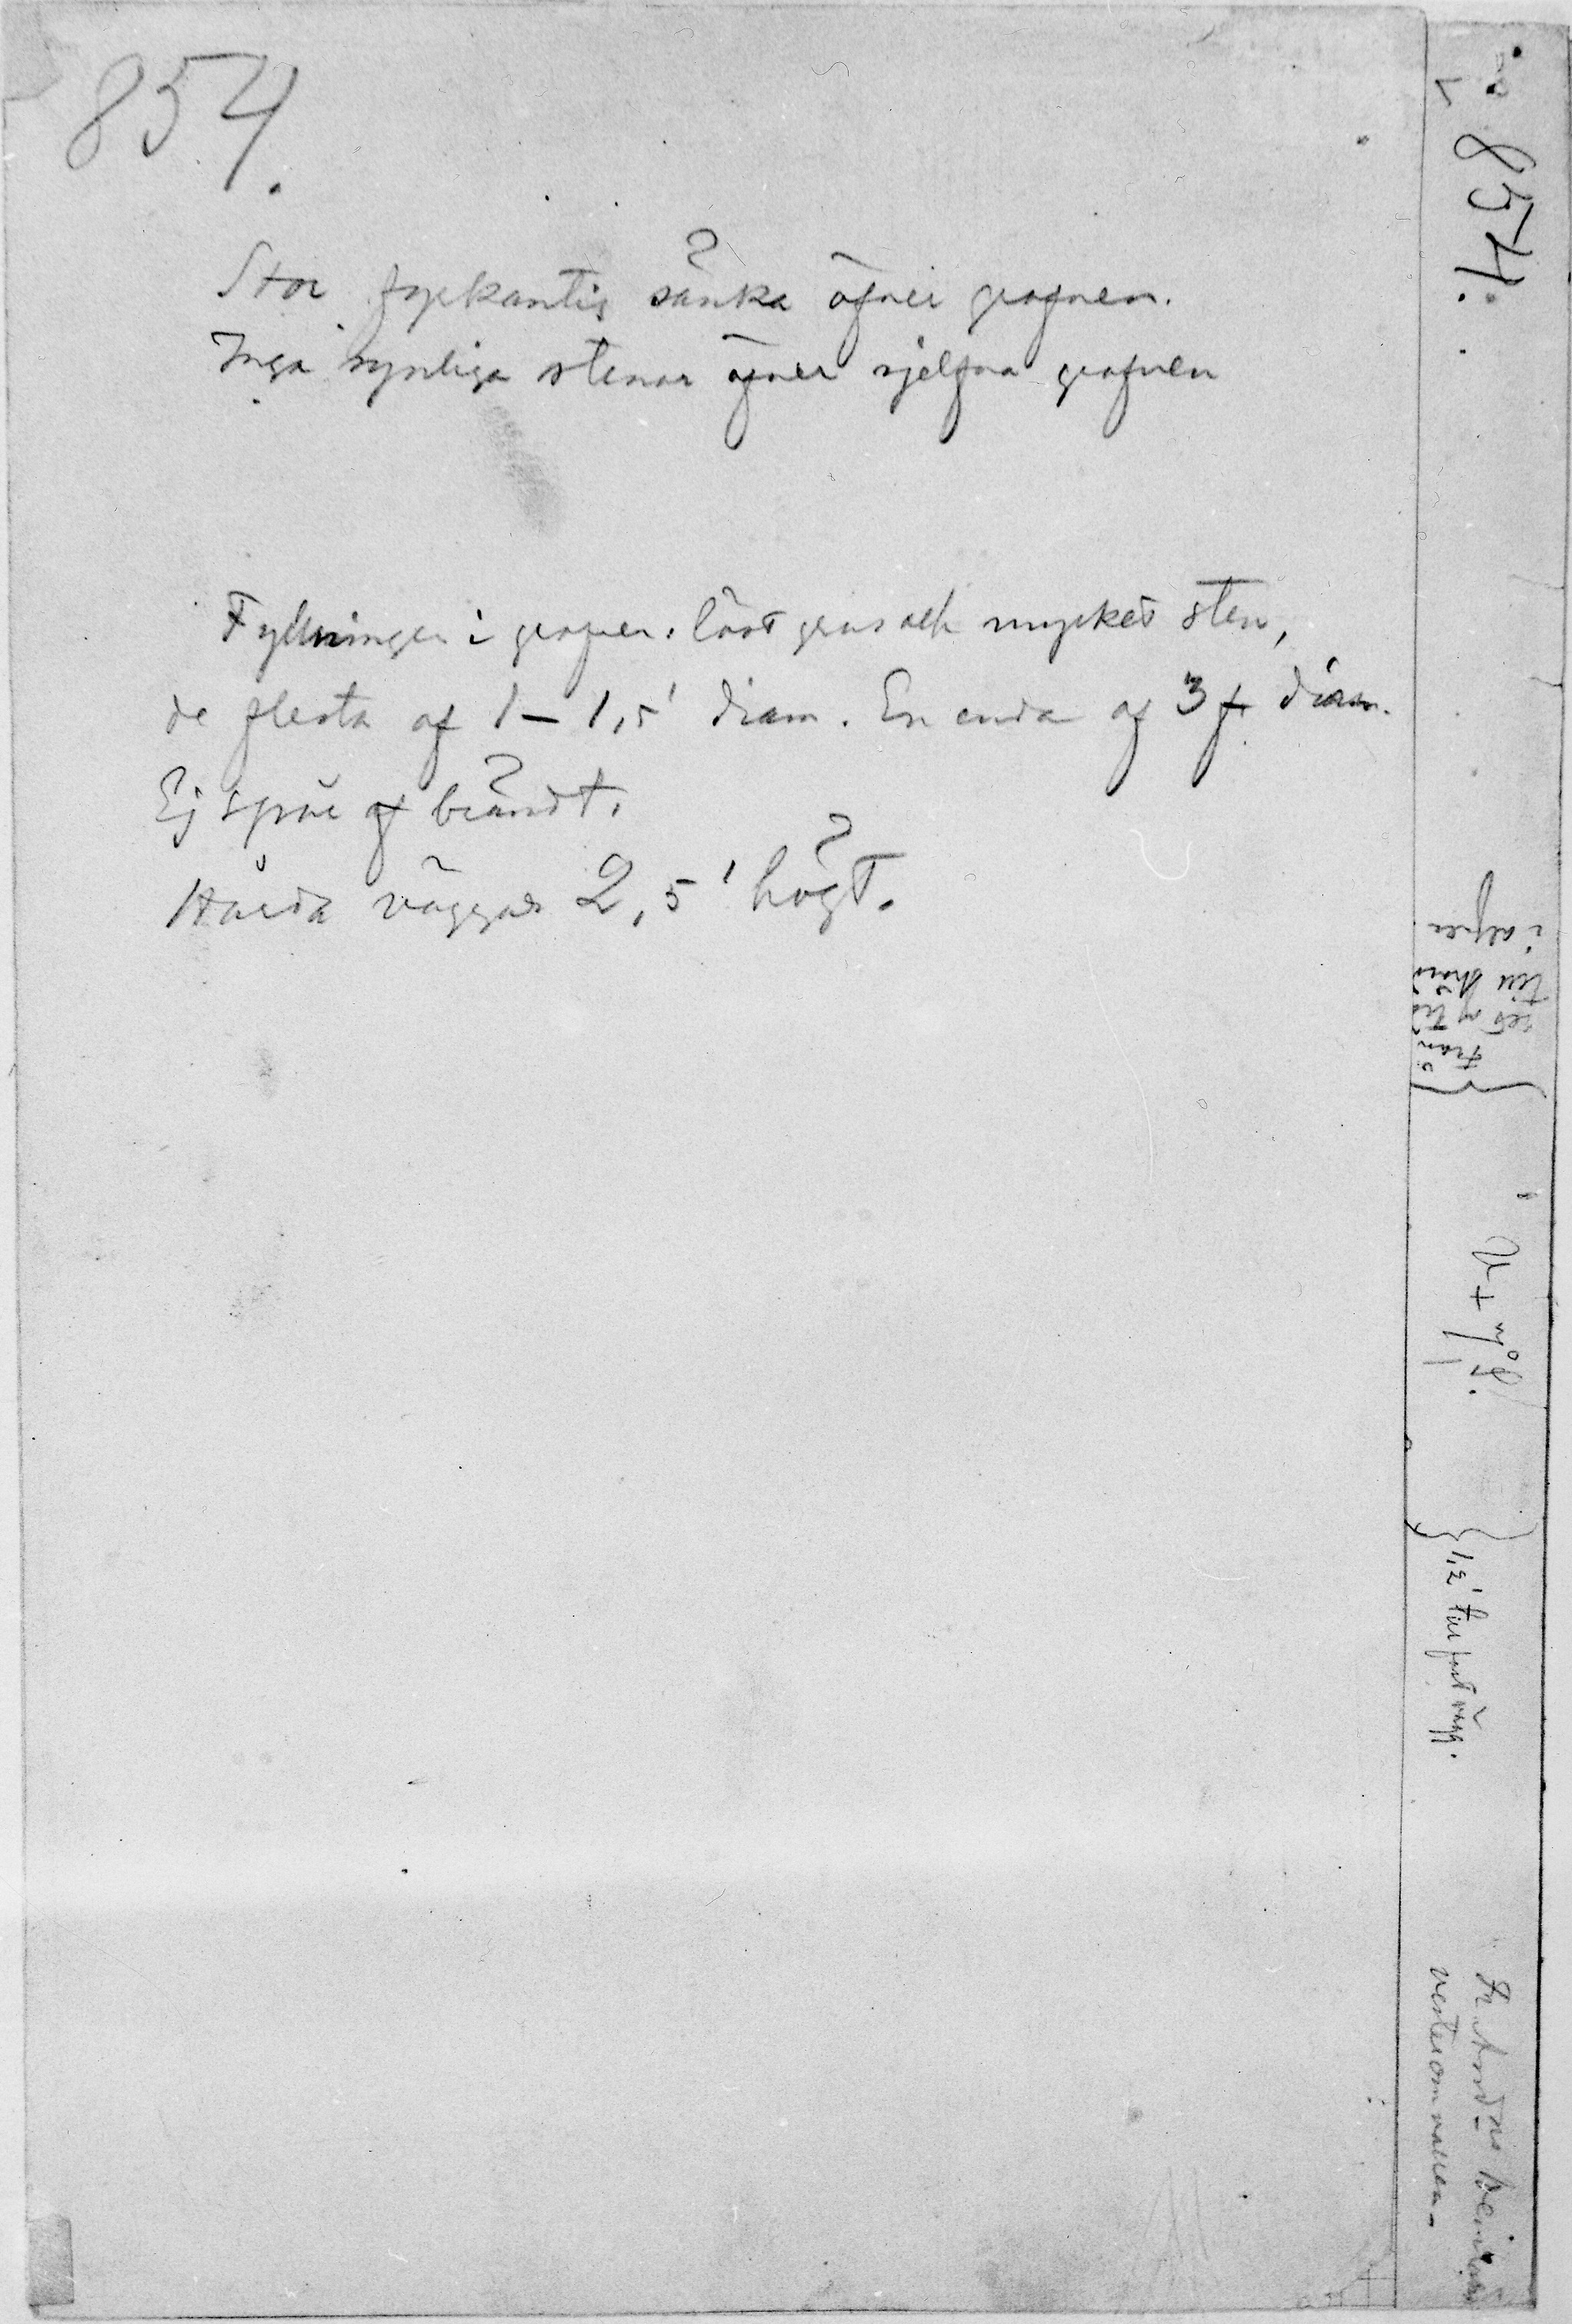 854.
Stor fyrkantig sänka öfver grafven.
Inga synliga stenar öfver sjelfva grafven
Fyllningen i grafven: löst grus och mycket sten,
de flesta af 1–1,5' diam. En enda af 3 f. diam.
Ej spår af brändt.
Hårda väggar 2,5' högt.
854.
i alfven
1,2' till fast vägg.
vester om vallen